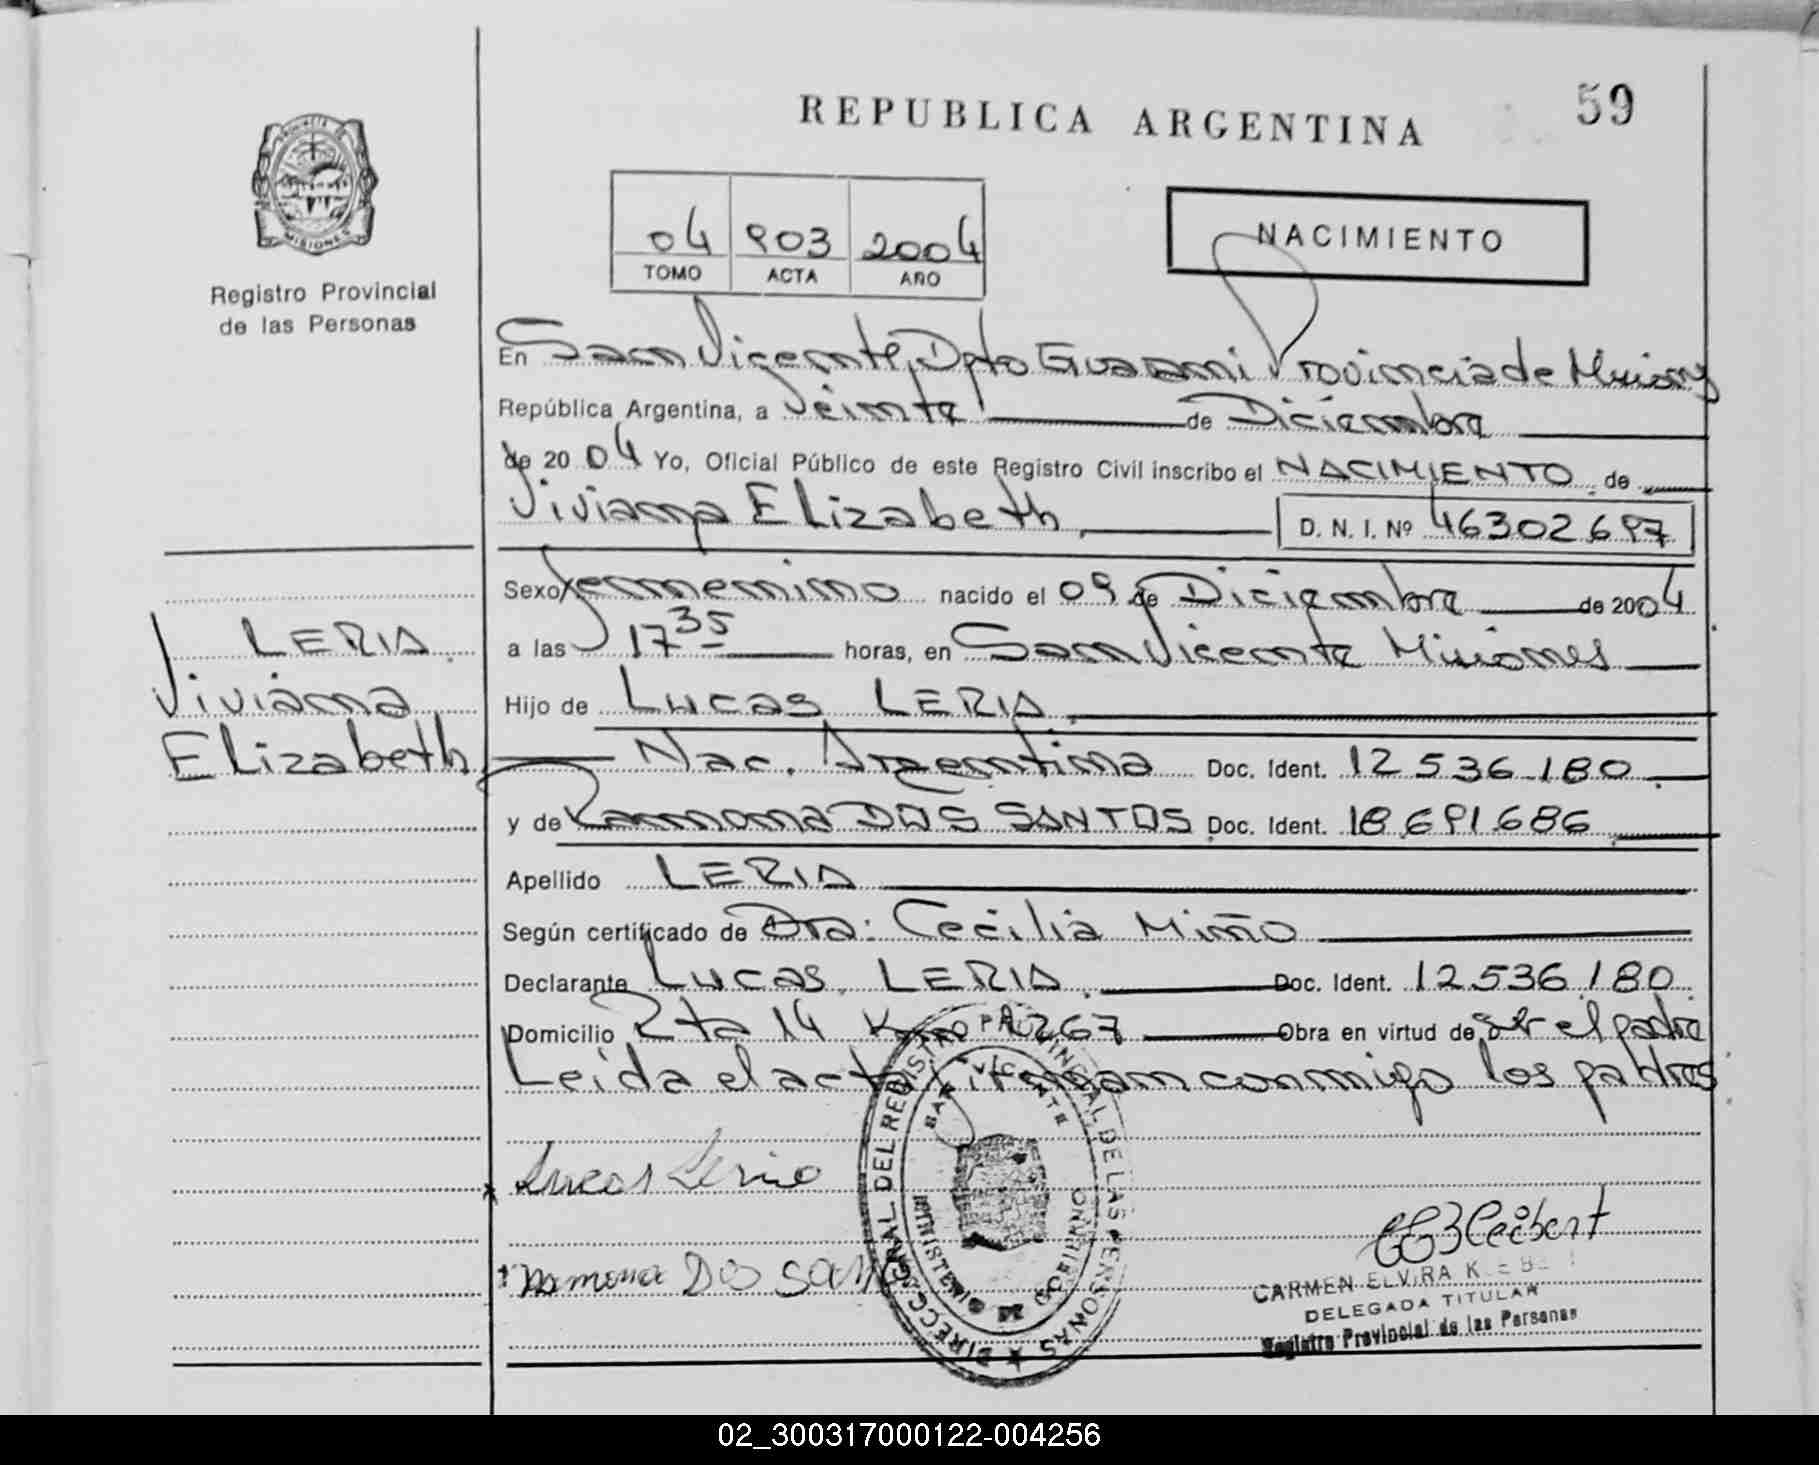 REPUBLICA ARGENTINA
59
PROVINCIA DE
MISIONES
Registro Provincial
de las Personas
04 903 2004
TOMO ACTA AÑO
NACIMIENTO
En San Vicente, Dpto Guarani Provincia de Misiones
República Argentina, a Veinte de Diciembre
de 2004 Yo, Oficial Público de este Registro Civil inscribo el NACIMIENTO de
Viviana Elizabeth D. N. I. Nº 46302697
Sexo femenino nacido el 09 de Diciembre de 2004
a las 17 35 horas, en San Vicente Misiones
Hijo de Lucas LERIA
Nac. Argentina Doc. Ident. 12 536.180
y de Ramona DOS SANTOS Doc. Ident. 18.691.686
Apellido LERIA
Según certificado de Dra: Cecilia Miño
Declarante Lucas LERIA Doc. Ident. 12.536.180
Domicilio Rta 14 Km 1267 Obra en virtud de ser el padre
Leida el acta firman conmigo los padres
LERIA
Viviana
Elizabeth
Lucas Leria
Ramona DOS SAN
DIRECC. GRAL. DEL REGISTRO PROVINCIAL DE LAS PERSONAS
SAN VICENTE
MINISTERIO DE GOBIERNO
CARMEN ELVIRA
DELEGADA TITULAR
Registro Provincial de las Personas
02_300317000122-004256